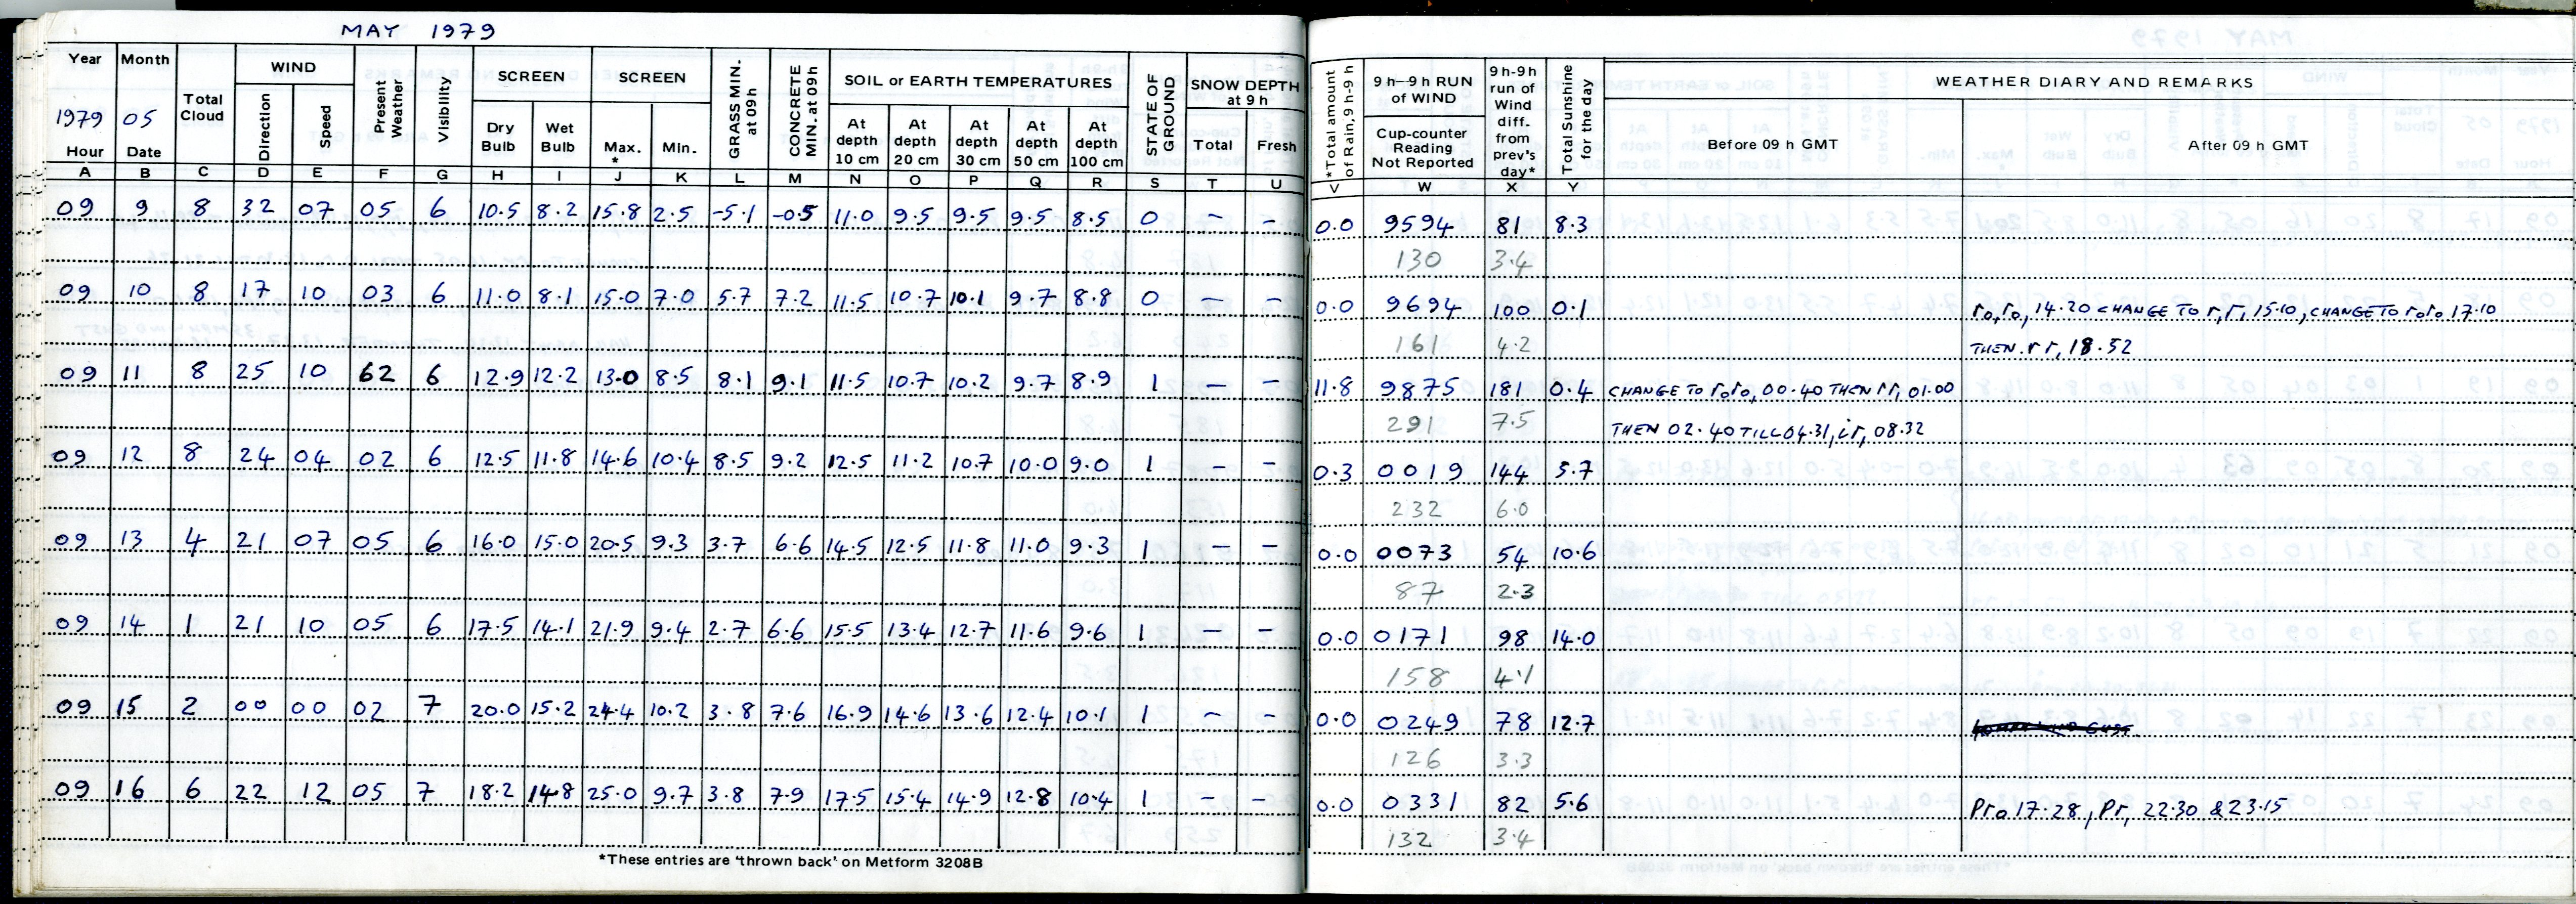 MAY 1979
Year Month Total Cloud WIND Present Weather Visibility SCREEN SCREEN GRASS MIN. at 09h CONCRETE MIN. at 09h SOIL or EARTH TEMPERATURES STATE OF GROUND SNOW DEPTH at 9 h *Total amount of Rain, 9 h-9 h 9 h-9 h RUN of WIND 9 h-9h run of Wind diff. from prev's day* Total Sunshine for the day WEATHER DIARY AND REMARKS
1979 05 Direction Speed Dry Bulb Wet Bulb Max. * Min. At depth 10 cm At depth 20 cm At depth 30 cm At depth 50 cm At depth 100 cm Total Fresh Cup-counter Reading Not Reported Before 09 h GMT After 09 h GMT
Hour Date
A B C D E F G H I J K L M N O P Q R S T U V W X Y
09 9 8 32 07 05 6 10.5 8.2 15.8 2.5 -5.1 -0.5 11.0 9.5 9.5 9.5 8.5 0 - - 0.0 9594 81 8.3
130 3.4
09 10 8 17 10 03 6 11.0 8.1 15.0 7.0 5.7 7.2 11.5 10.7 10.1 9.7 8.8 0 - - 0.0 9694 100 0.1 roro, 14.20 CHANGE TO r,r, 15.10, CHANGE TO roro 17.10
161 4.2 THEN.rr, 18.52
09 11 8 25 10 62 6 12.9 12.2 13.0 8.5 8.1 9.1 11.5 10.7 10.2 9.7 8.9 1 - - 11.8 9875 181 0.4 CHANGE TO roro, 00.40 THEN rr, 01.00
291 7.5 THEN 02.40 TILL 04.31, ir, 08.32
09 12 8 24 04 02 6 12.5 11.8 14.6 10.4 8.5 9.2 12.5 11.2 10.7 10.0 9.0 1 - - 0.3 0019 144 5.7
232 6.0
09 13 4 21 07 05 6 16.0 15.0 20.5 9.3 3.7 6.6 14.5 12.5 11.8 11.0 9.3 1 - - 0.0 0073 54 10.6
87 2.3
09 14 1 21 10 05 6 17.5 14.1 21.9 9.4 2.7 6.6 15.5 13.4 12.7 11.6 9.6 1 - - 0.0 0171 98 14.0
158 4.1
09 15 2 00 00 02 7 20.0 15.2 24.4 10.2 3.8 7.6 16.9 14.6 13.6 12.4 10.1 1 - - 0.0 0249 78 12.7
126 3.3
09 16 6 22 12 05 7 18.2 14.8 25.0 9.7 3.8 7.9 17.5 15.4 14.9 12.8 10.4 1 - - 0.0 0331 82 5.6 Pro 17.28, Pr, 22.30 & 23.15
132 3.4
*These entries are 'thrown back' on Metform 3208B